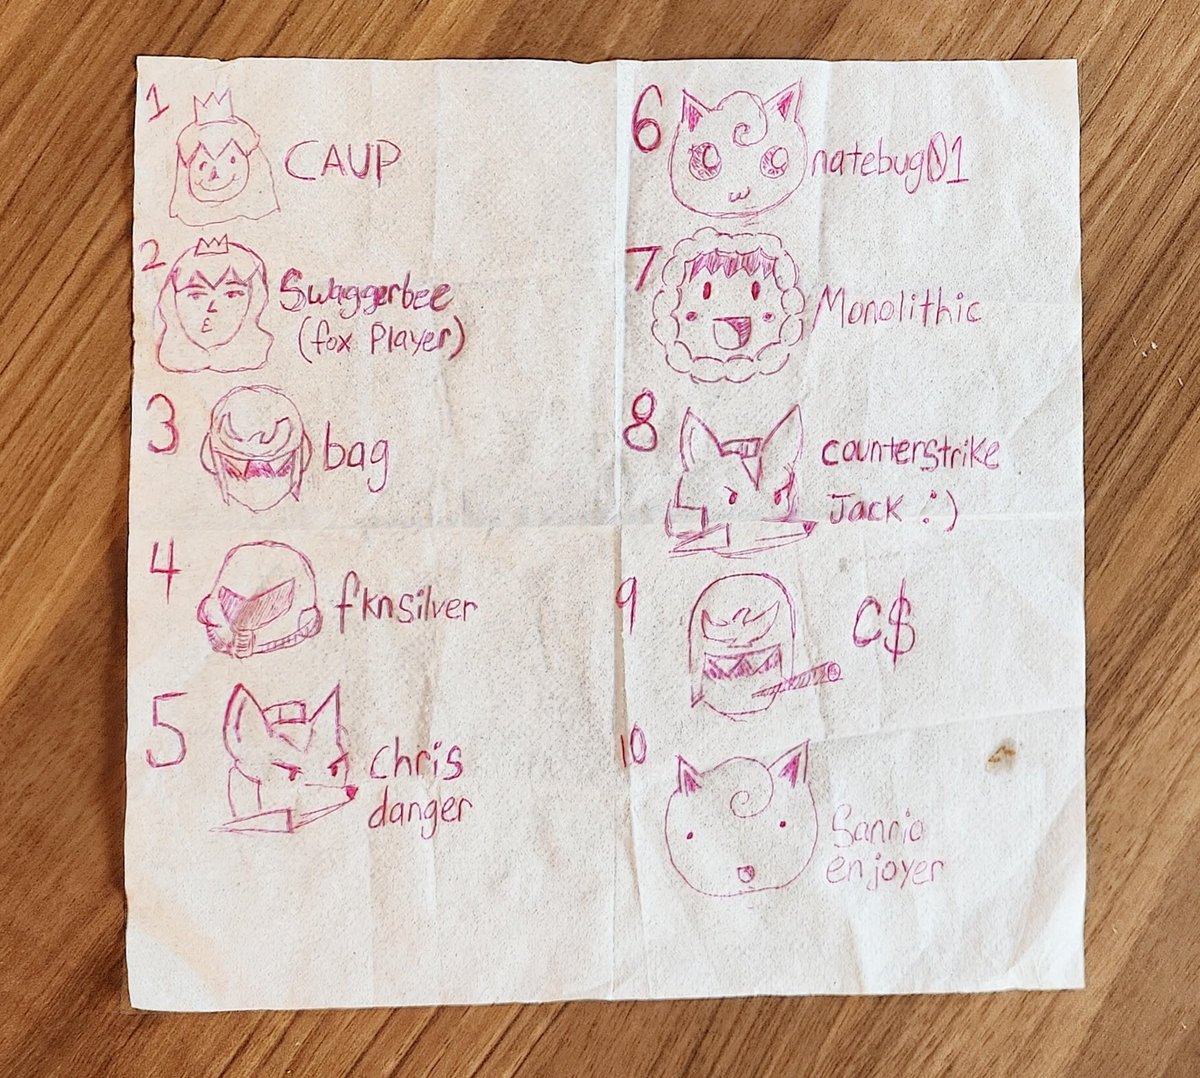 1 CAUP
2 Swaggerbee
(fox Player)
3 bag
4 fknsilver
5 chris
danger
6 natebug01
7 Monolithic
8 counterstrike
Jack :)
9 C$
10 Sanrio
enjoyer